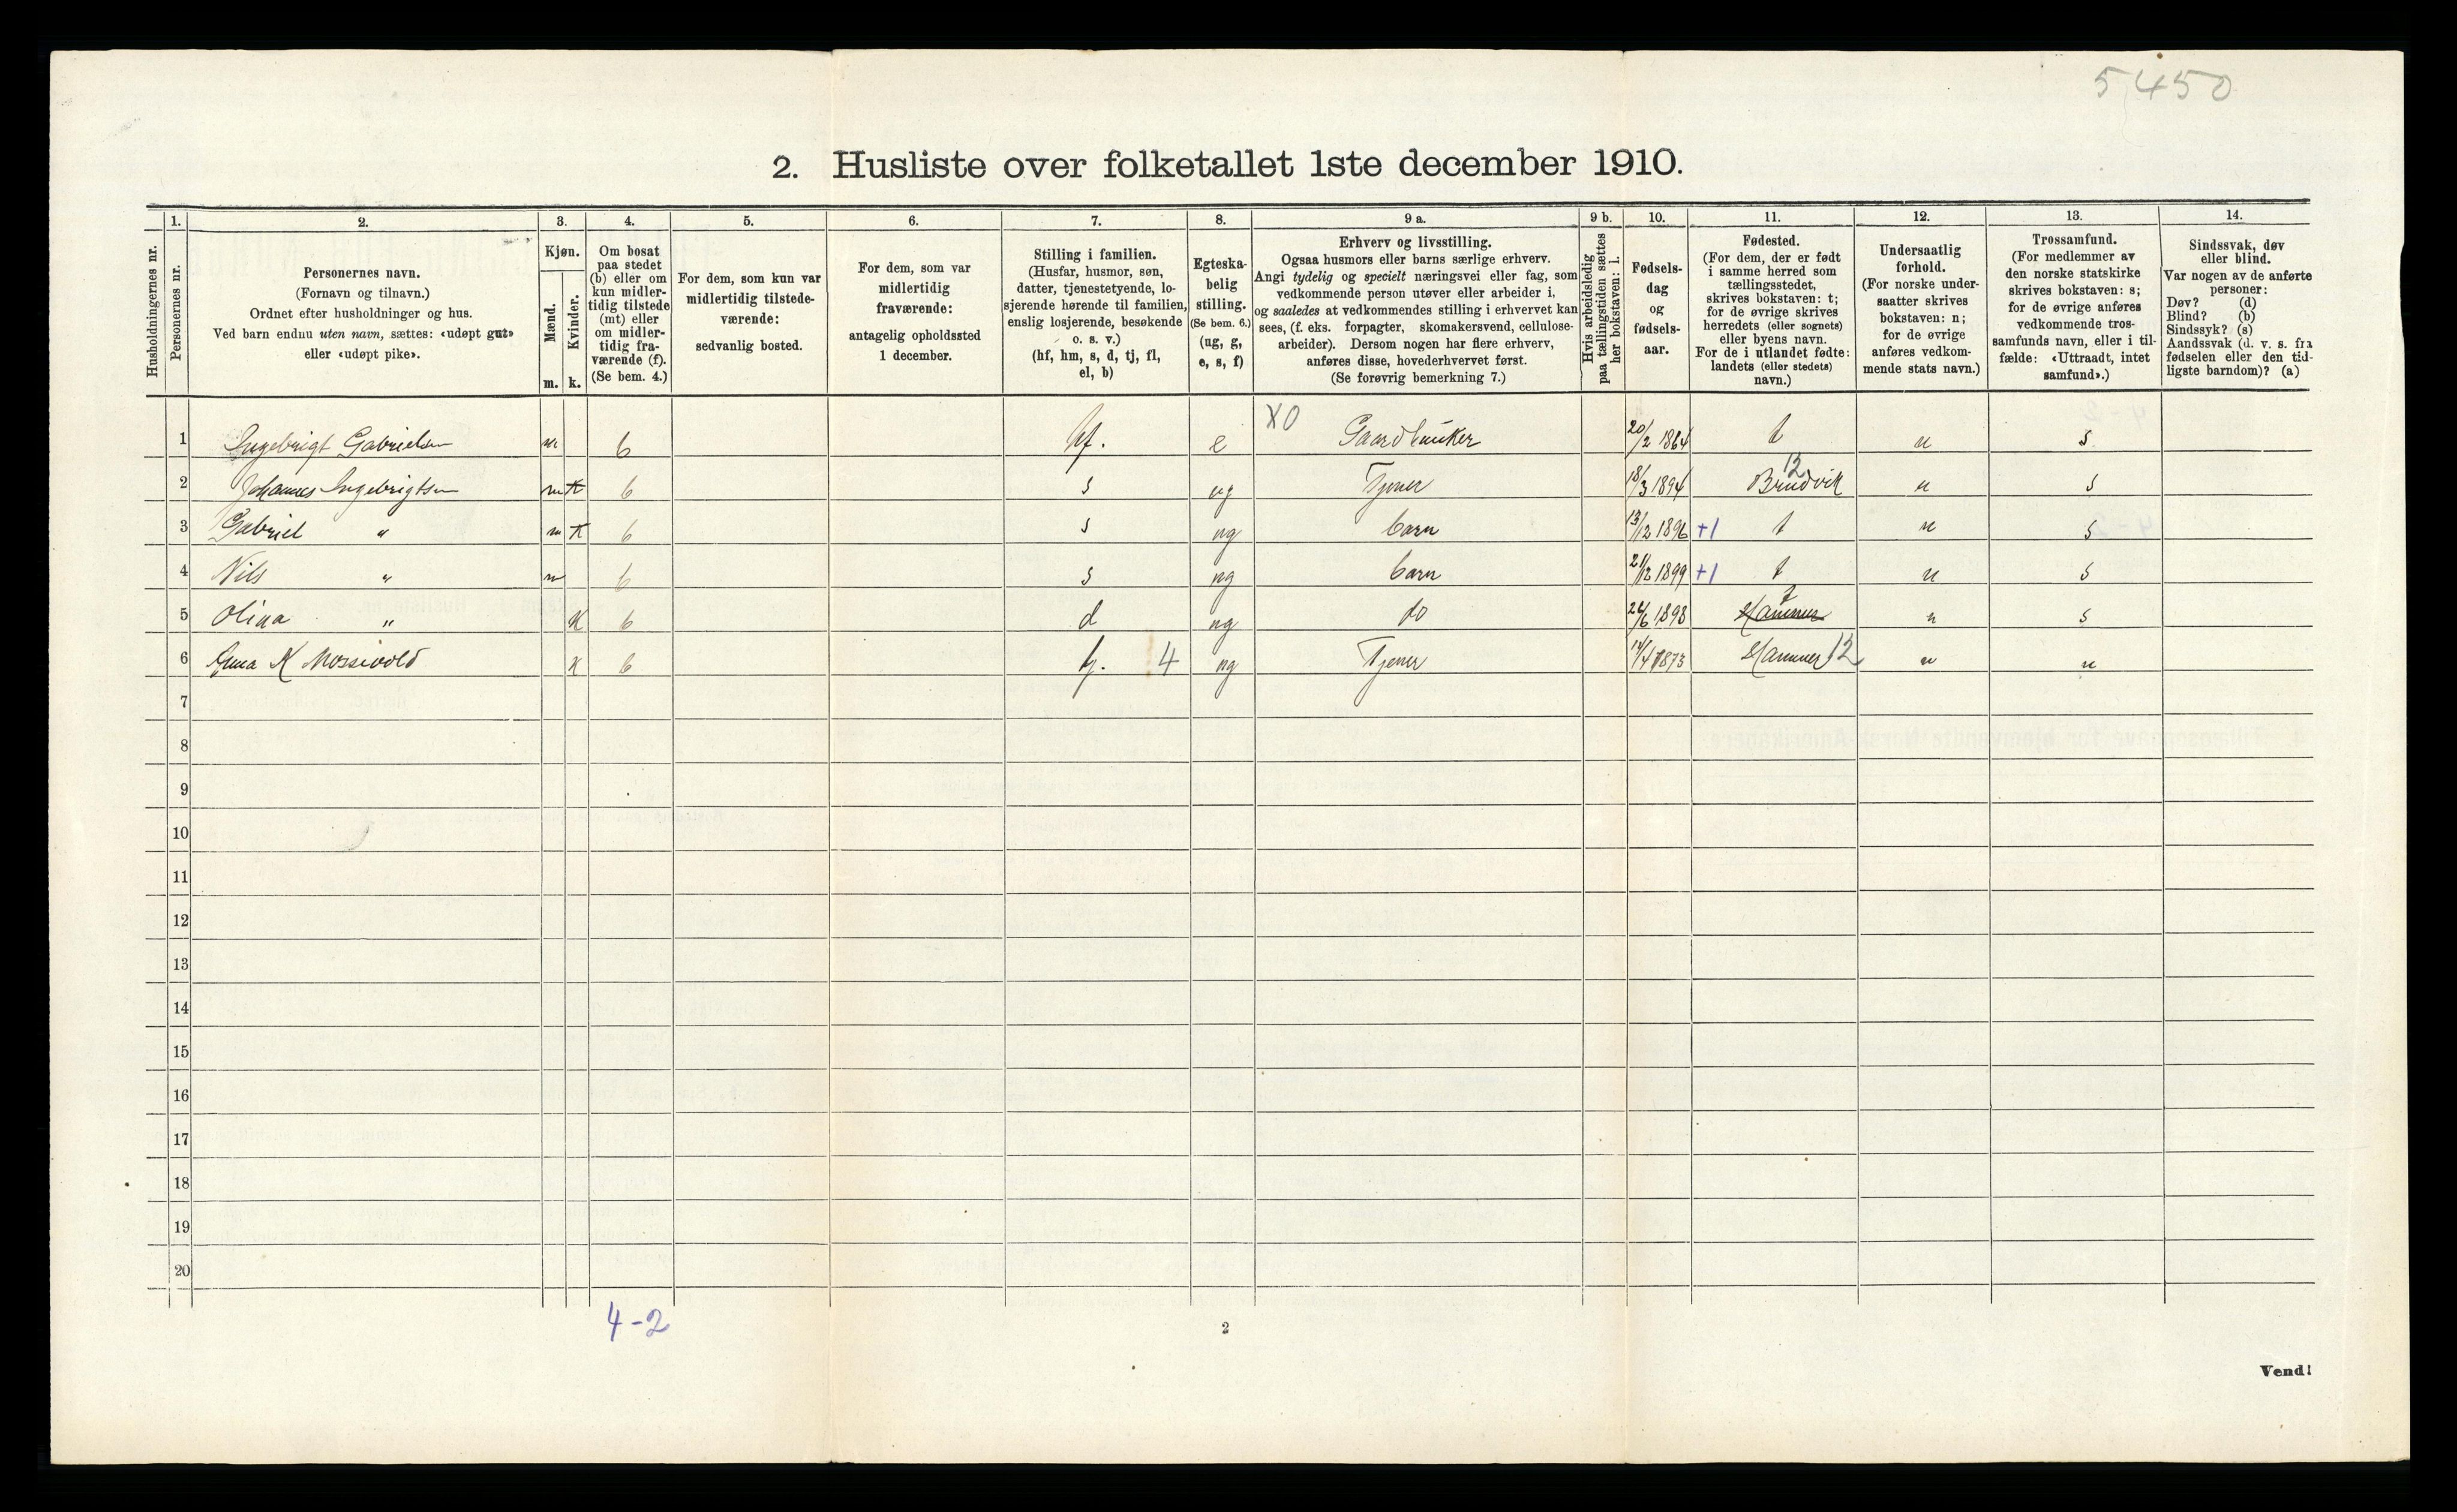 5450
2. Husliste over folketallet 1ste december 1910.
Husholdningernes nr.
1.
Personernes nr.
2.
Personernes navn.
(Fornavn og tilnavn.)
Ordnet efter husholdninger og hus.
Ved barn endnu uten navn, sættes: «udøpt gut»
eller «udøpt pike».
3.
Kjøn.
Mænd.
m.
Kvinder.
k.
4.
Om bosat
paa stedet
(b) eller om
kun midler-
tidig tilstede
(mt) eller
om midler-
tidig fra-
værende (f).
(Se bem. 4.)
5.
For dem, som kun var
midlertidig tilstede-
værende:
sedvanlig bosted.
6.
For dem, som var
midlertidig
fraværende:
antagelig opholdssted
1 december.
7.
Stilling i familien.
(Husfar, husmor, søn,
datter, tjenestetyende, lo-
sjerende hørende til familien,
enslig losjerende, besøkende
o. s. v.)
(hf, hm, s, d, tj, fl,
el, b)
8.
Egteska-
belig
stilling.
(Se bem. 6.)
(ug, g,
e, s, f)
9 a.
Erhverv og livsstilling.
Ogsaa husmors eller barns særlige erhverv.
Angi tydelig og specielt næringsvei eller fag, som
vedkommende person utøver eller arbeider i,
og saaledes at vedkommendes stilling i erhvervet kan
sees, (f. eks. forpagter, skomakersvend, cellulose-
arbeider). Dersom nogen har flere erhverv,
anføres disse, hovederhvervet først.
(Se forøvrig bemerkning 7.)
9 b.
Hvis arbeidsledig
paa tællingstiden sættes
her bokstaven: l.
10.
Fødsels-
dag
og
fødsels-
aar.
11.
Fødested.
(For dem, der er født
i samme herred som
tællingsstedet,
skrives bokstaven: t;
for de øvrige skrives
herredets (eller sognets)
eller byens navn.
For de i utlandet fødte:
landets (eller stedets)
navn.)
12.
Undersaatlig
forhold.
(For norske under-
saatter skrives
bokstaven: n;
for de øvrige
anføres vedkom-
mende stats navn.)
13.
Trossamfund.
(For medlemmer av
den norske statskirke
skrives bokstaven: s;
for de øvrige anføres
vedkommende tros-
samfunds navn, eller i til-
fælde: «Uttraadt, intet
samfund».)
14.
Sindssvak, døv
eller blind.
Var nogen av de anførte
personer:
Døv? (d)
Blind? (b)
Sindssyk? (s)
Aandssvak (d. v. s. fra
fødselen eller den tid-
ligste barndom)? (a)
1 Ingebrigt Gabrielsen m b hf. e X0 Gaardbruker 20/2 1864 t n s
2 Johannes Ingebrigtsen m k b s ug Tjener 18/3 1894 Bruvik 12 n s
3 Gabriel " m k b s ug barn 13/12 1896 +1 t n s
4 Nils " m b s ug barn 21/12 1899 +1 t n s
5 Olina " k b d ug do 24/6 1898 Hammer t n s
6 Anna K Mossevold k b tj. 4 ug Tjener 14/4 1873 Hammer 12 n n
7
8
9
10
11
12
13
14
15
16
17
18
19
20
4-2
2
Vend!